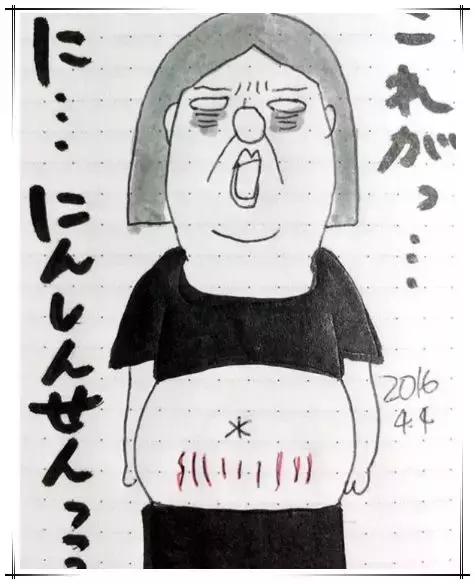 これがっ…
に… にんしんせんっっ
2016
4.4